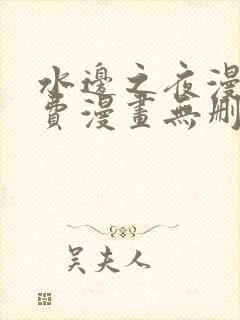 水邊之夜漫
費漫畫無刪
吳夫人